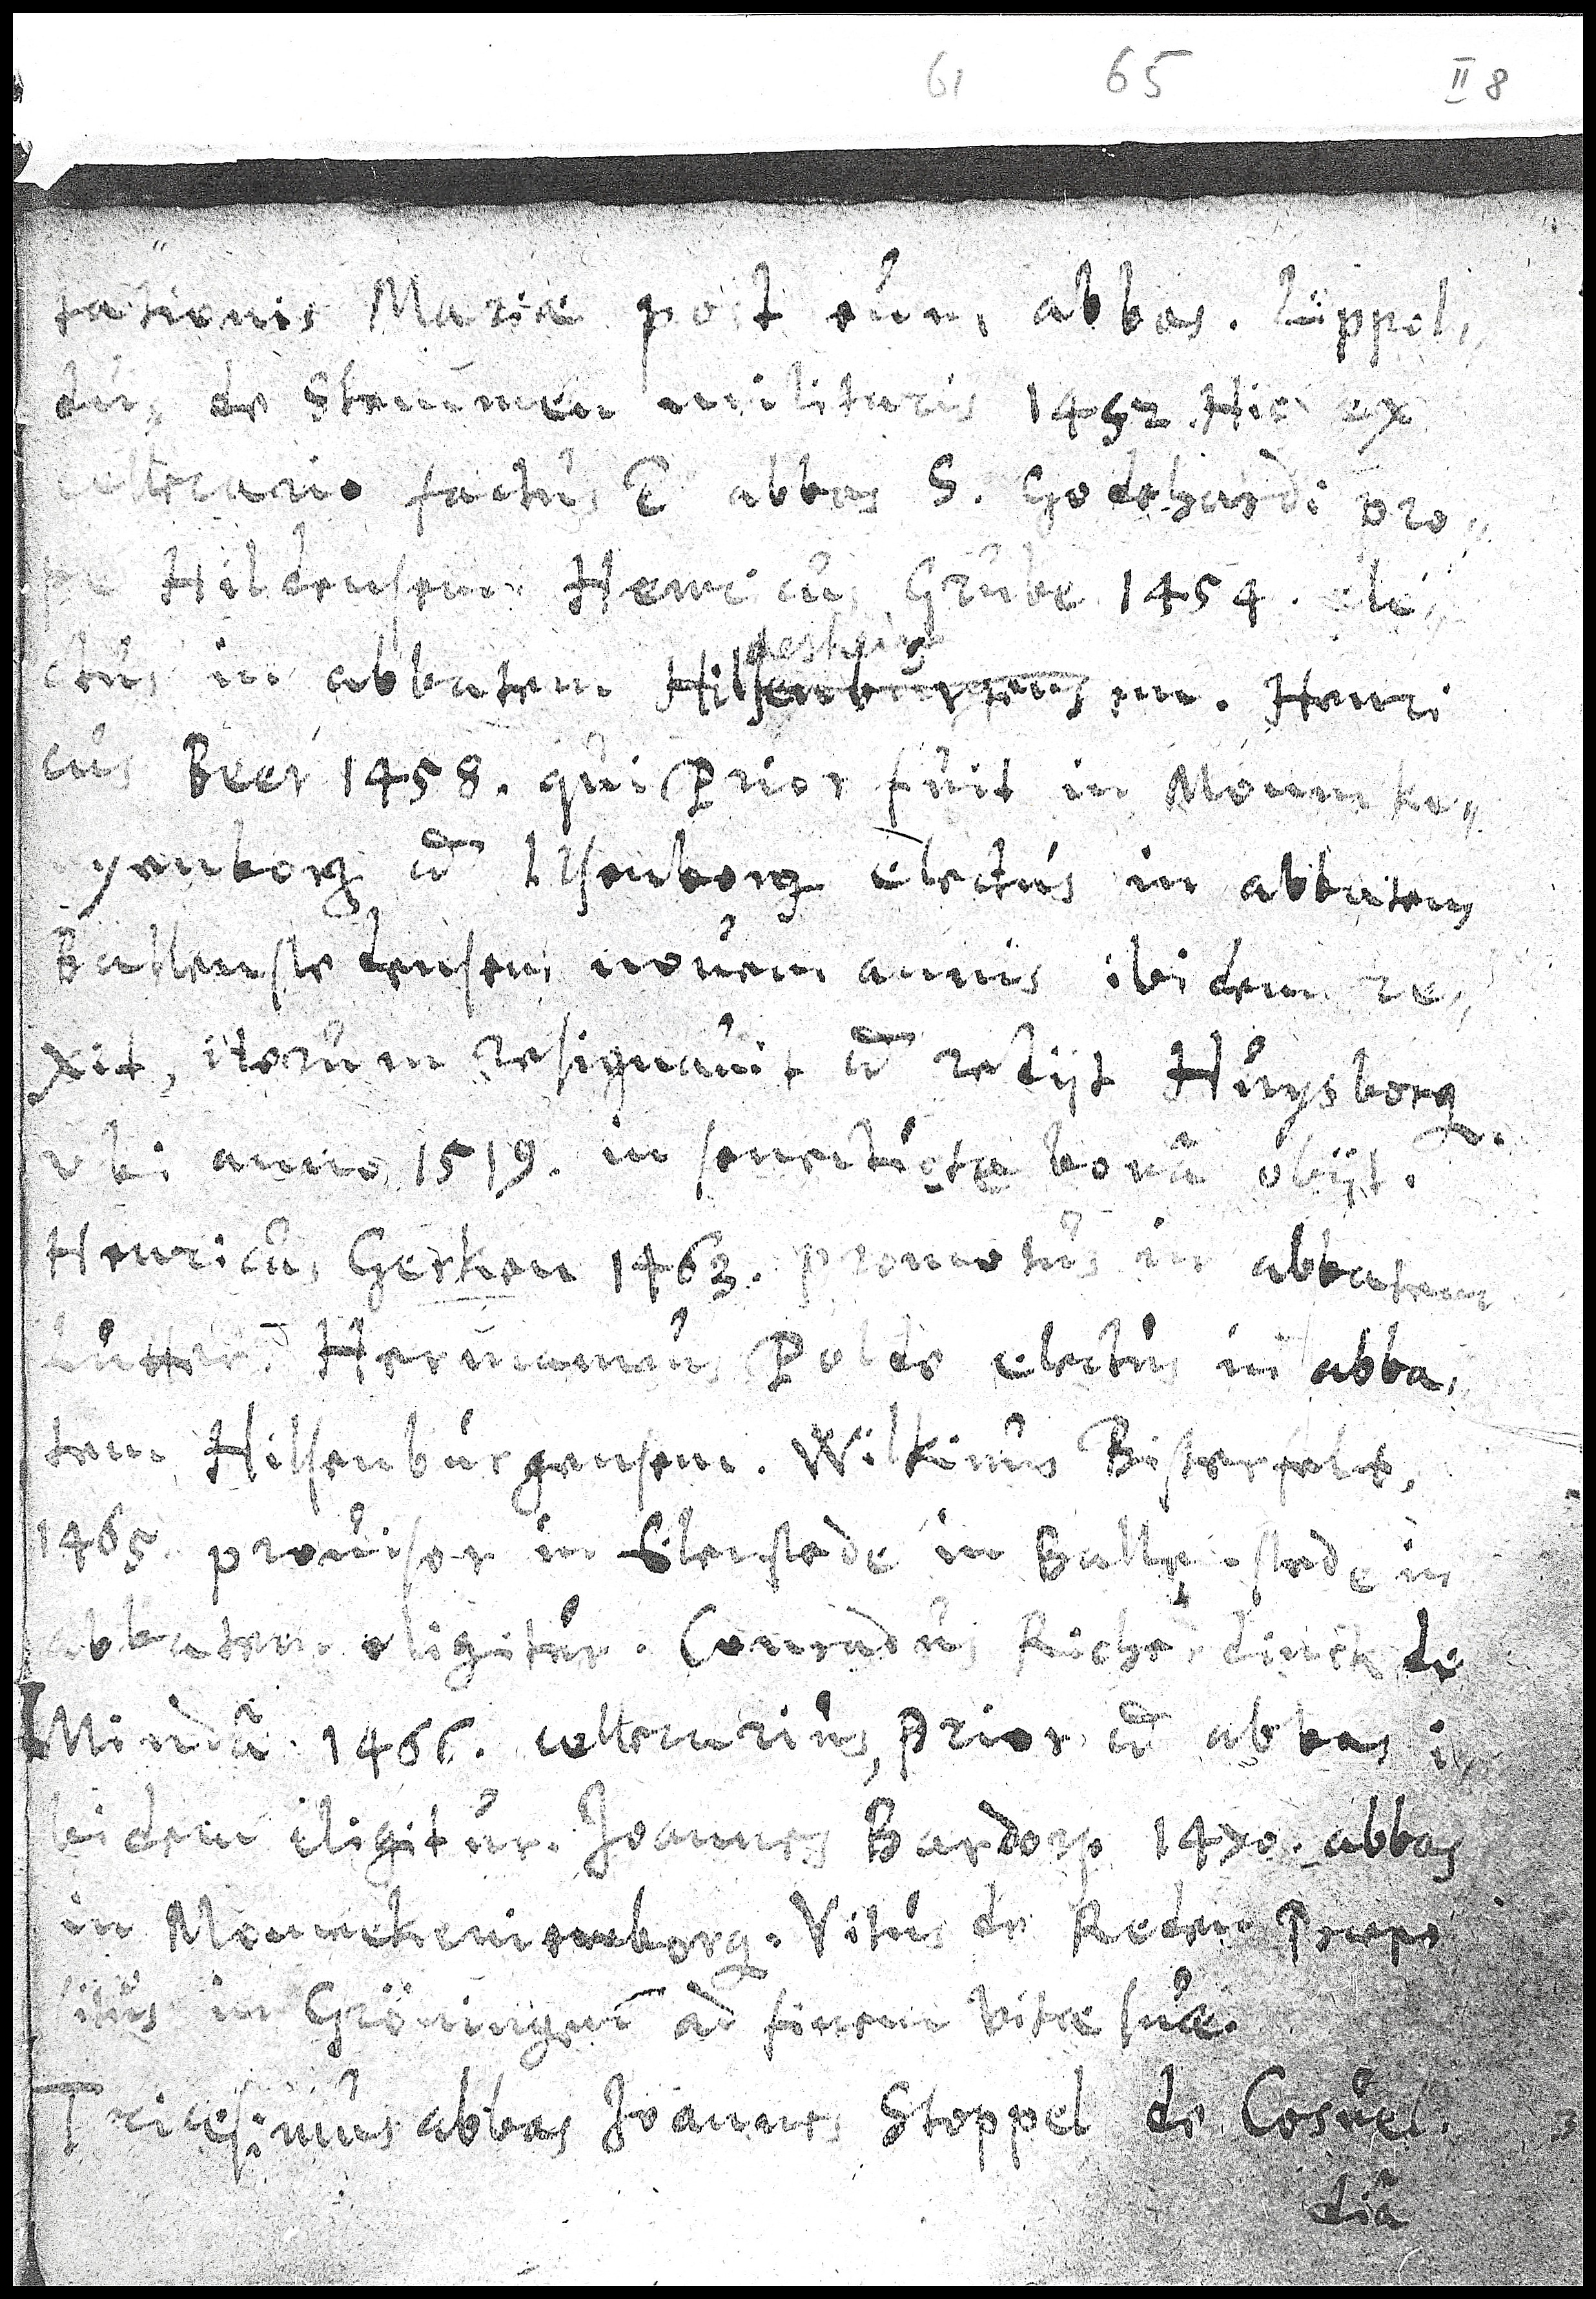 61 65 II 8
tationis Mariæ post eum abbas. Lüppel,,
dus de Stemmen militaris 1452. Hic ex
cellerario factus ē abbas S. Godehardi pro,,
pe Hildensem. Henricus Grube 1454. ele,,
desheim
ctus in abbatem Hilsenburgensem. Henri
cus Beer 1458. qui Prior fuit in Monneke,,
nyenborg et Ilsenborg electus in abbatem
Ballenstedensem novem annis ibidem re,,
xit, iterum resignavit et redijt Huysborg
ubi anno 1519. in senectute bonâ obijt.
Henricus Gerken 1463. promotus in abbatem
Lutter. Hermannus Polde electus in abba,,
tem Hilsenburgensem. Wilkinus Bisterfelt,
1465. provisor in Eilenstede in Ballenstede in
abbatem eligitur. Conradus de
Mindâ 1466. cellerarius, Prior et abbas i,,
bidem eligitur. Joannes Bardorp 1470. abbas
in Monnekenienborg. Vitus de Reden Præpo
situs in Gröningen ad finem vitæ suæ.
Tricesimus abbas Joannes Stoppel de Cosvel.
diâ